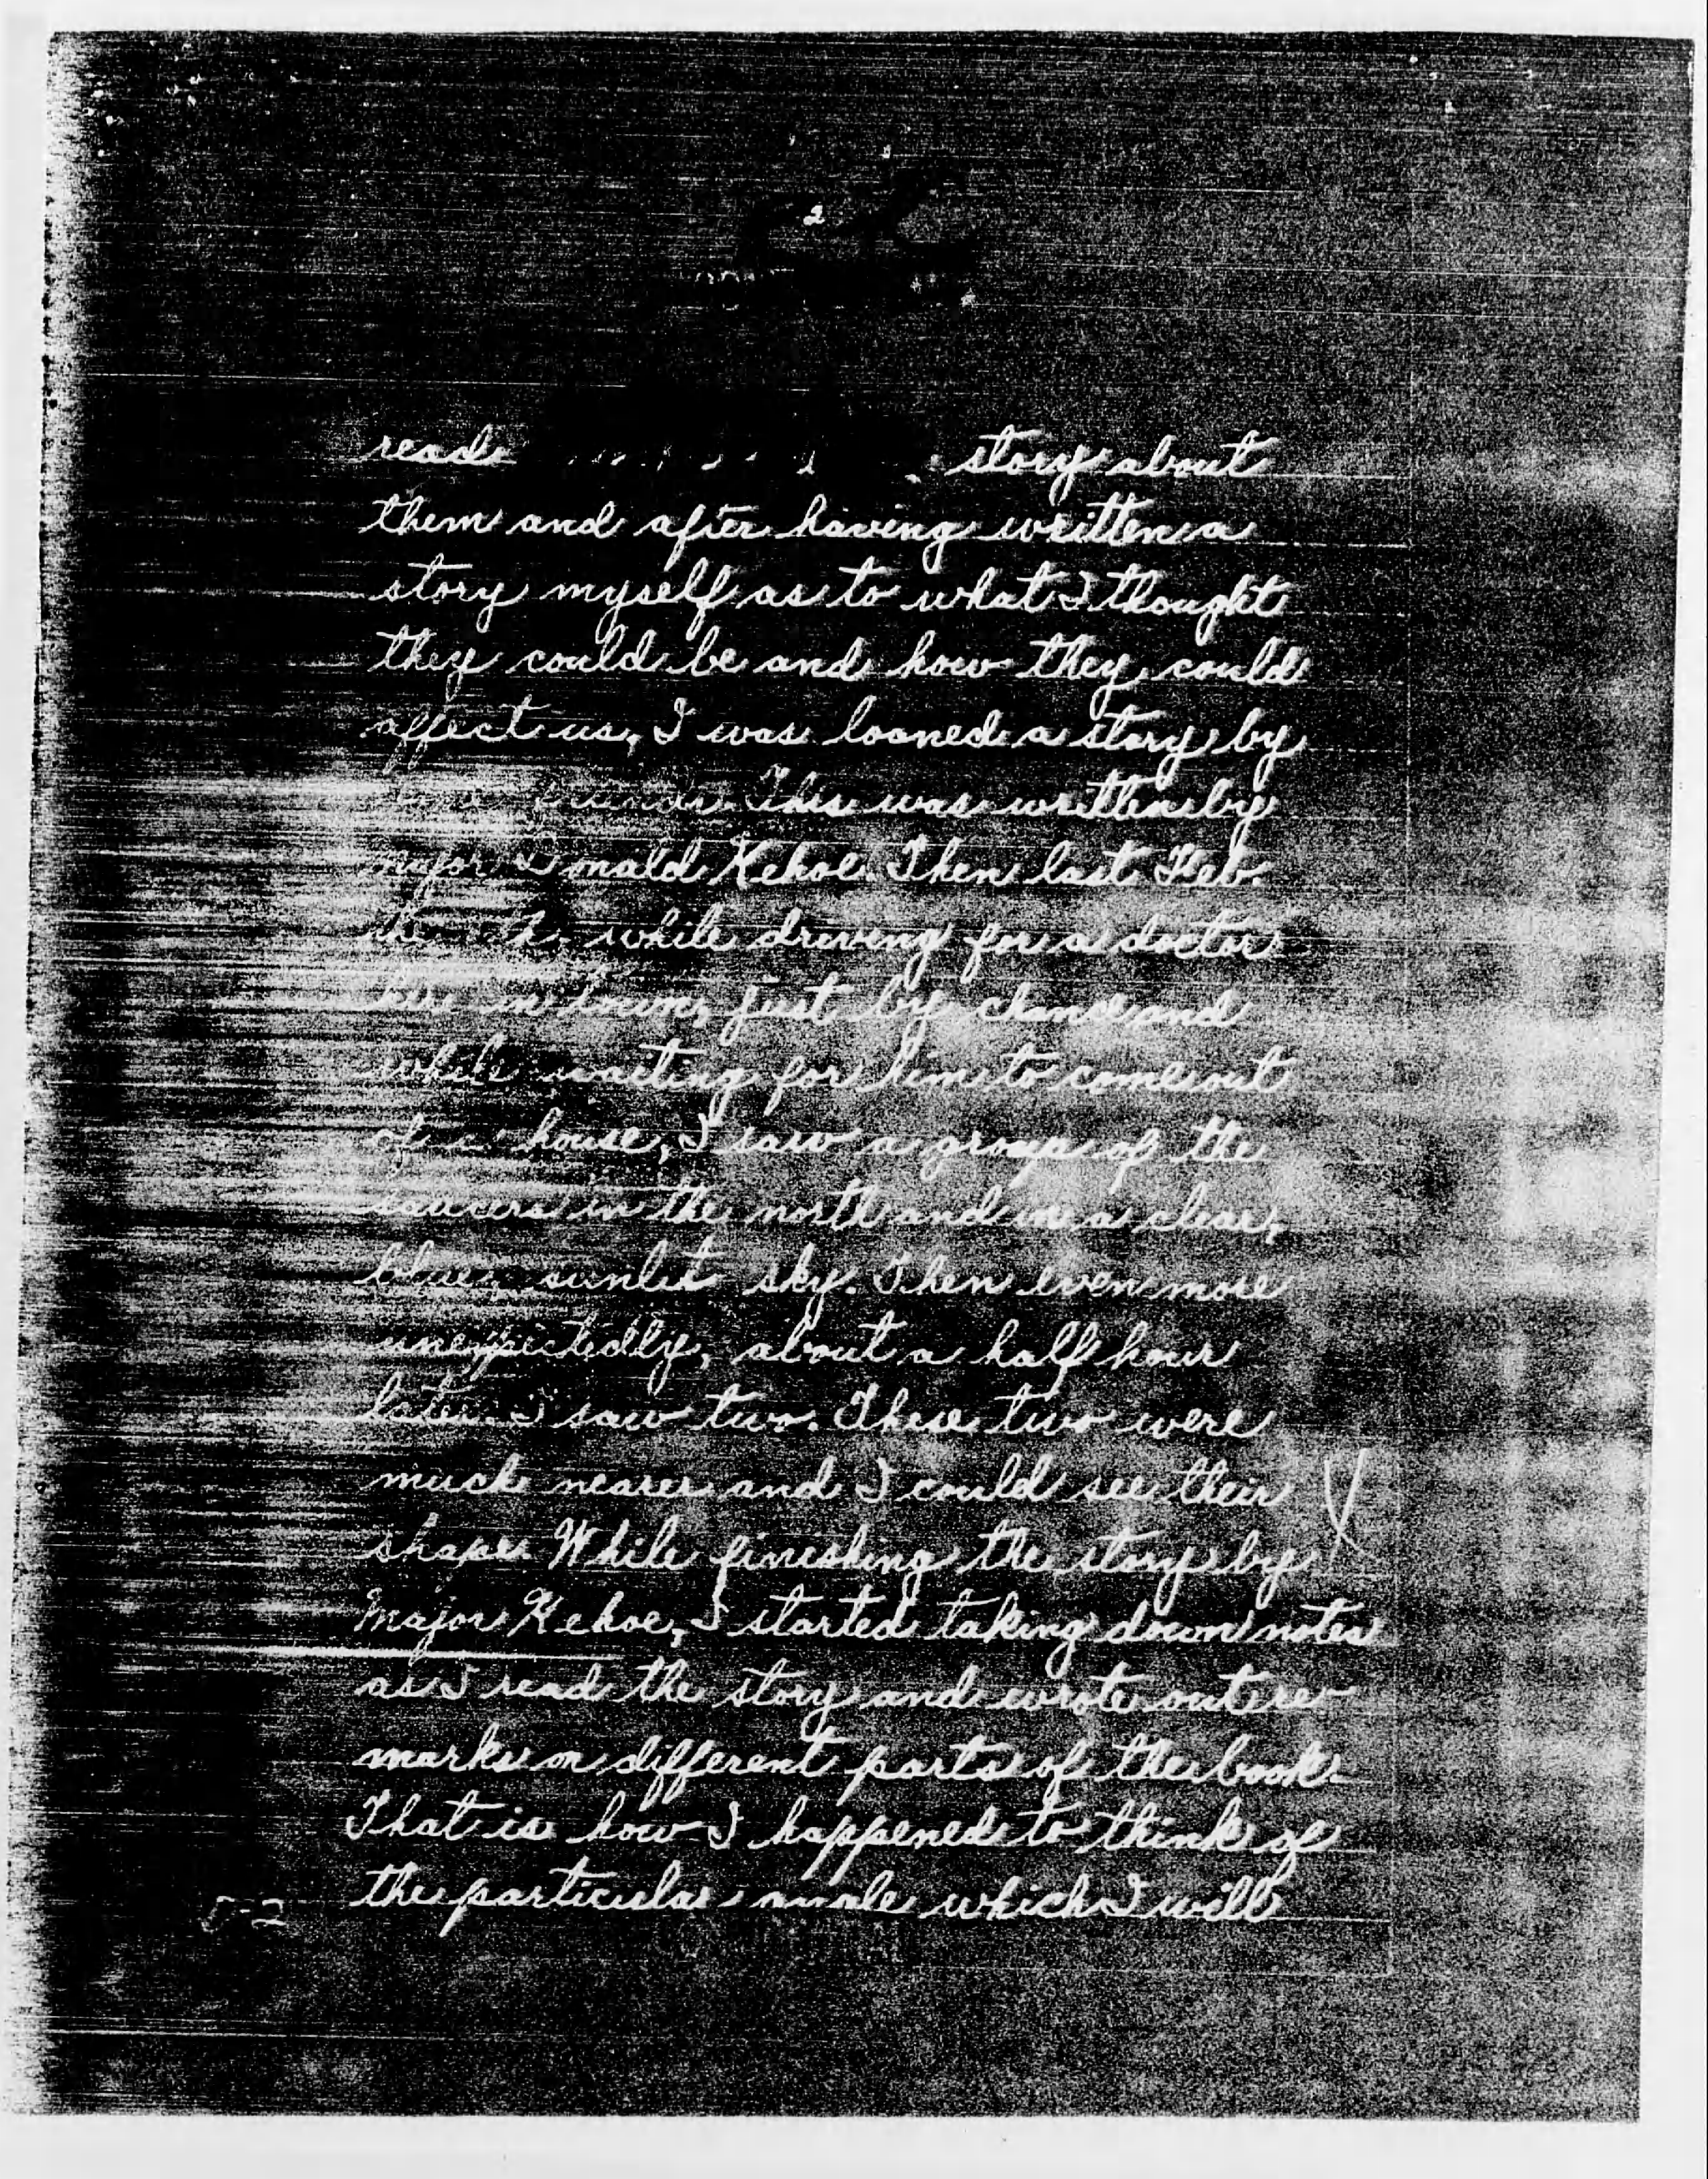 2
read story about
them and after having written a
story myself as to what I thought
they could be and how they could
affect us, I was loaned a story by
This was written by
Major Donald Kehoe. Then last Feb.
while driving for a doctor
in town, just by chance and
while waiting for him to come out
of house, I saw a group of the
saucers in the north and in a clear,
blue, sunlit sky. Then even more
unexpectedly, about a half hour
later I saw two. These two were
much nearer and I could see their
shape. While finishing the story by
Major Kehoe, I started taking down notes
as I read the story and wrote out re-
marks on different parts of the book.
That is how I happened to think of
the particular angle which I will
5-2